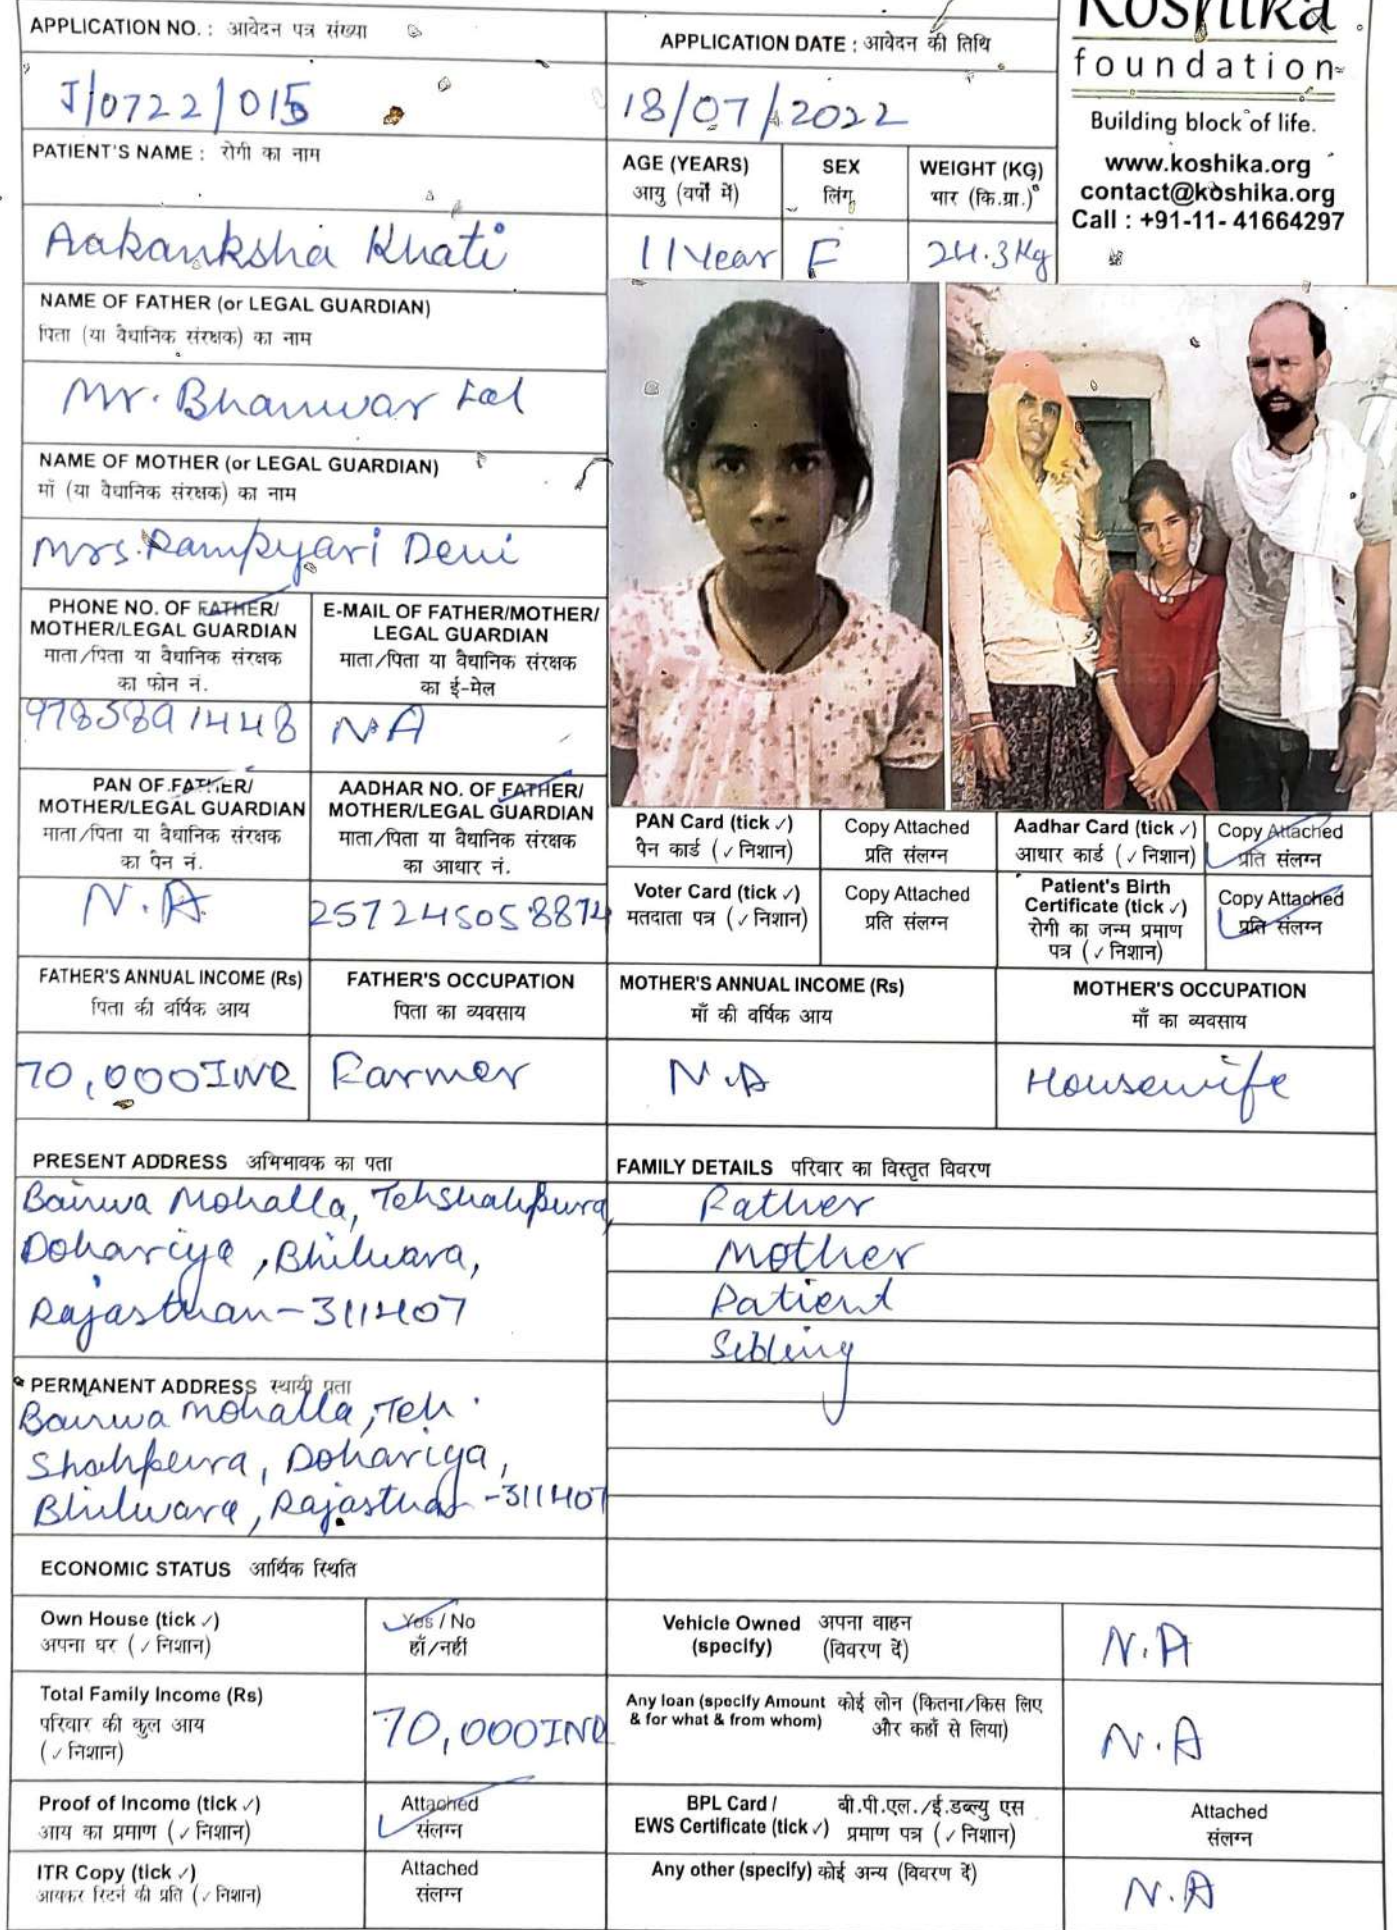 Koshika
foundation
Building block of life.
www.koshika.org
contact@koshika.org
Call : +91-11- 41664297
APPLICATION NO. : आवेदन पत्र संख्या
J/0722/015
APPLICATION DATE : आवेदन की तिथि
18/07/2022
PATIENT'S NAME : रोगी का नाम
Aakanksha Khati
AGE (YEARS)
आयु (वर्षों में)
11 Year
SEX
लिंग
F
WEIGHT (KG)
भार (कि.ग्रा.)
24.3 Kg
NAME OF FATHER (or LEGAL GUARDIAN)
पिता (या वैधानिक संरक्षक) का नाम
Mr. Bhanwar Lal
NAME OF MOTHER (or LEGAL GUARDIAN)
माँ (या वैधानिक संरक्षक) का नाम
Mrs. Rampyari Devi
PHONE NO. OF FATHER/
MOTHER/LEGAL GUARDIAN
माता/पिता या वैधानिक संरक्षक
का फोन नं.
E-MAIL OF FATHER/MOTHER/
LEGAL GUARDIAN
माता/पिता या वैधानिक संरक्षक
का ई-मेल
N.A
PAN OF FATHER/
MOTHER/LEGAL GUARDIAN
माता/पिता या वैधानिक संरक्षक
का पैन नं.
N.A
AADHAR NO. OF FATHER/
MOTHER/LEGAL GUARDIAN
माता/पिता या वैधानिक संरक्षक
का आधार नं.
257245058874
PAN Card (tick ✓)
पैन कार्ड (✓ निशान)
Copy Attached
प्रति संलग्न
Aadhar Card (tick ✓)
आधार कार्ड (✓ निशान)
Copy Attached
प्रति संलग्न
Voter Card (tick ✓)
मतदाता पत्र (✓ निशान)
Copy Attached
प्रति संलग्न
Patient's Birth
Certificate (tick ✓)
रोगी का जन्म प्रमाण
पत्र (✓ निशान)
Copy Attached
प्रति संलग्न
FATHER'S ANNUAL INCOME (Rs)
पिता की वर्षिक आय
70,000INR
FATHER'S OCCUPATION
पिता का व्यवसाय
Farmer
MOTHER'S ANNUAL INCOME (Rs)
माँ की वर्षिक आय
N.A
MOTHER'S OCCUPATION
माँ का व्यवसाय
Housewife
PRESENT ADDRESS अभिभावक का पता
Bairwa Mohalla, Tehshahpura,
Dohariya, Bhilwara,
Rajasthan-311407
FAMILY DETAILS परिवार का विस्तृत विवरण
Father
Mother
Patient
Sibling
PERMANENT ADDRESS स्थायी पता
Bairwa Mohalla, Teh.
Shahpura, Dohariya,
Bhilwara, Rajasthan -311407
ECONOMIC STATUS आर्थिक स्थिति
Own House (tick ✓)
अपना घर (✓ निशान)
Yes / No
हाँ/नहीं
Vehicle Owned अपना वाहन
(specify) (विवरण दें)
N.A
Total Family Income (Rs)
परिवार की कुल आय
(✓ निशान)
70,000INR
Any loan (specify Amount कोई लोन (कितना/किस लिए
& for what & from whom) और कहाँ से लिया)
N.A
Proof of Income (tick ✓)
आय का प्रमाण (✓ निशान)
Attached
संलग्न
BPL Card / बी.पी.एल./ई.डब्ल्यु एस
EWS Certificate (tick ✓) प्रमाण पत्र (✓ निशान)
Attached
संलग्न
ITR Copy (tick ✓)
आयकर रिटर्न की प्रति (✓ निशान)
Attached
संलग्न
Any other (specify) कोई अन्य (विवरण दें)
N.A